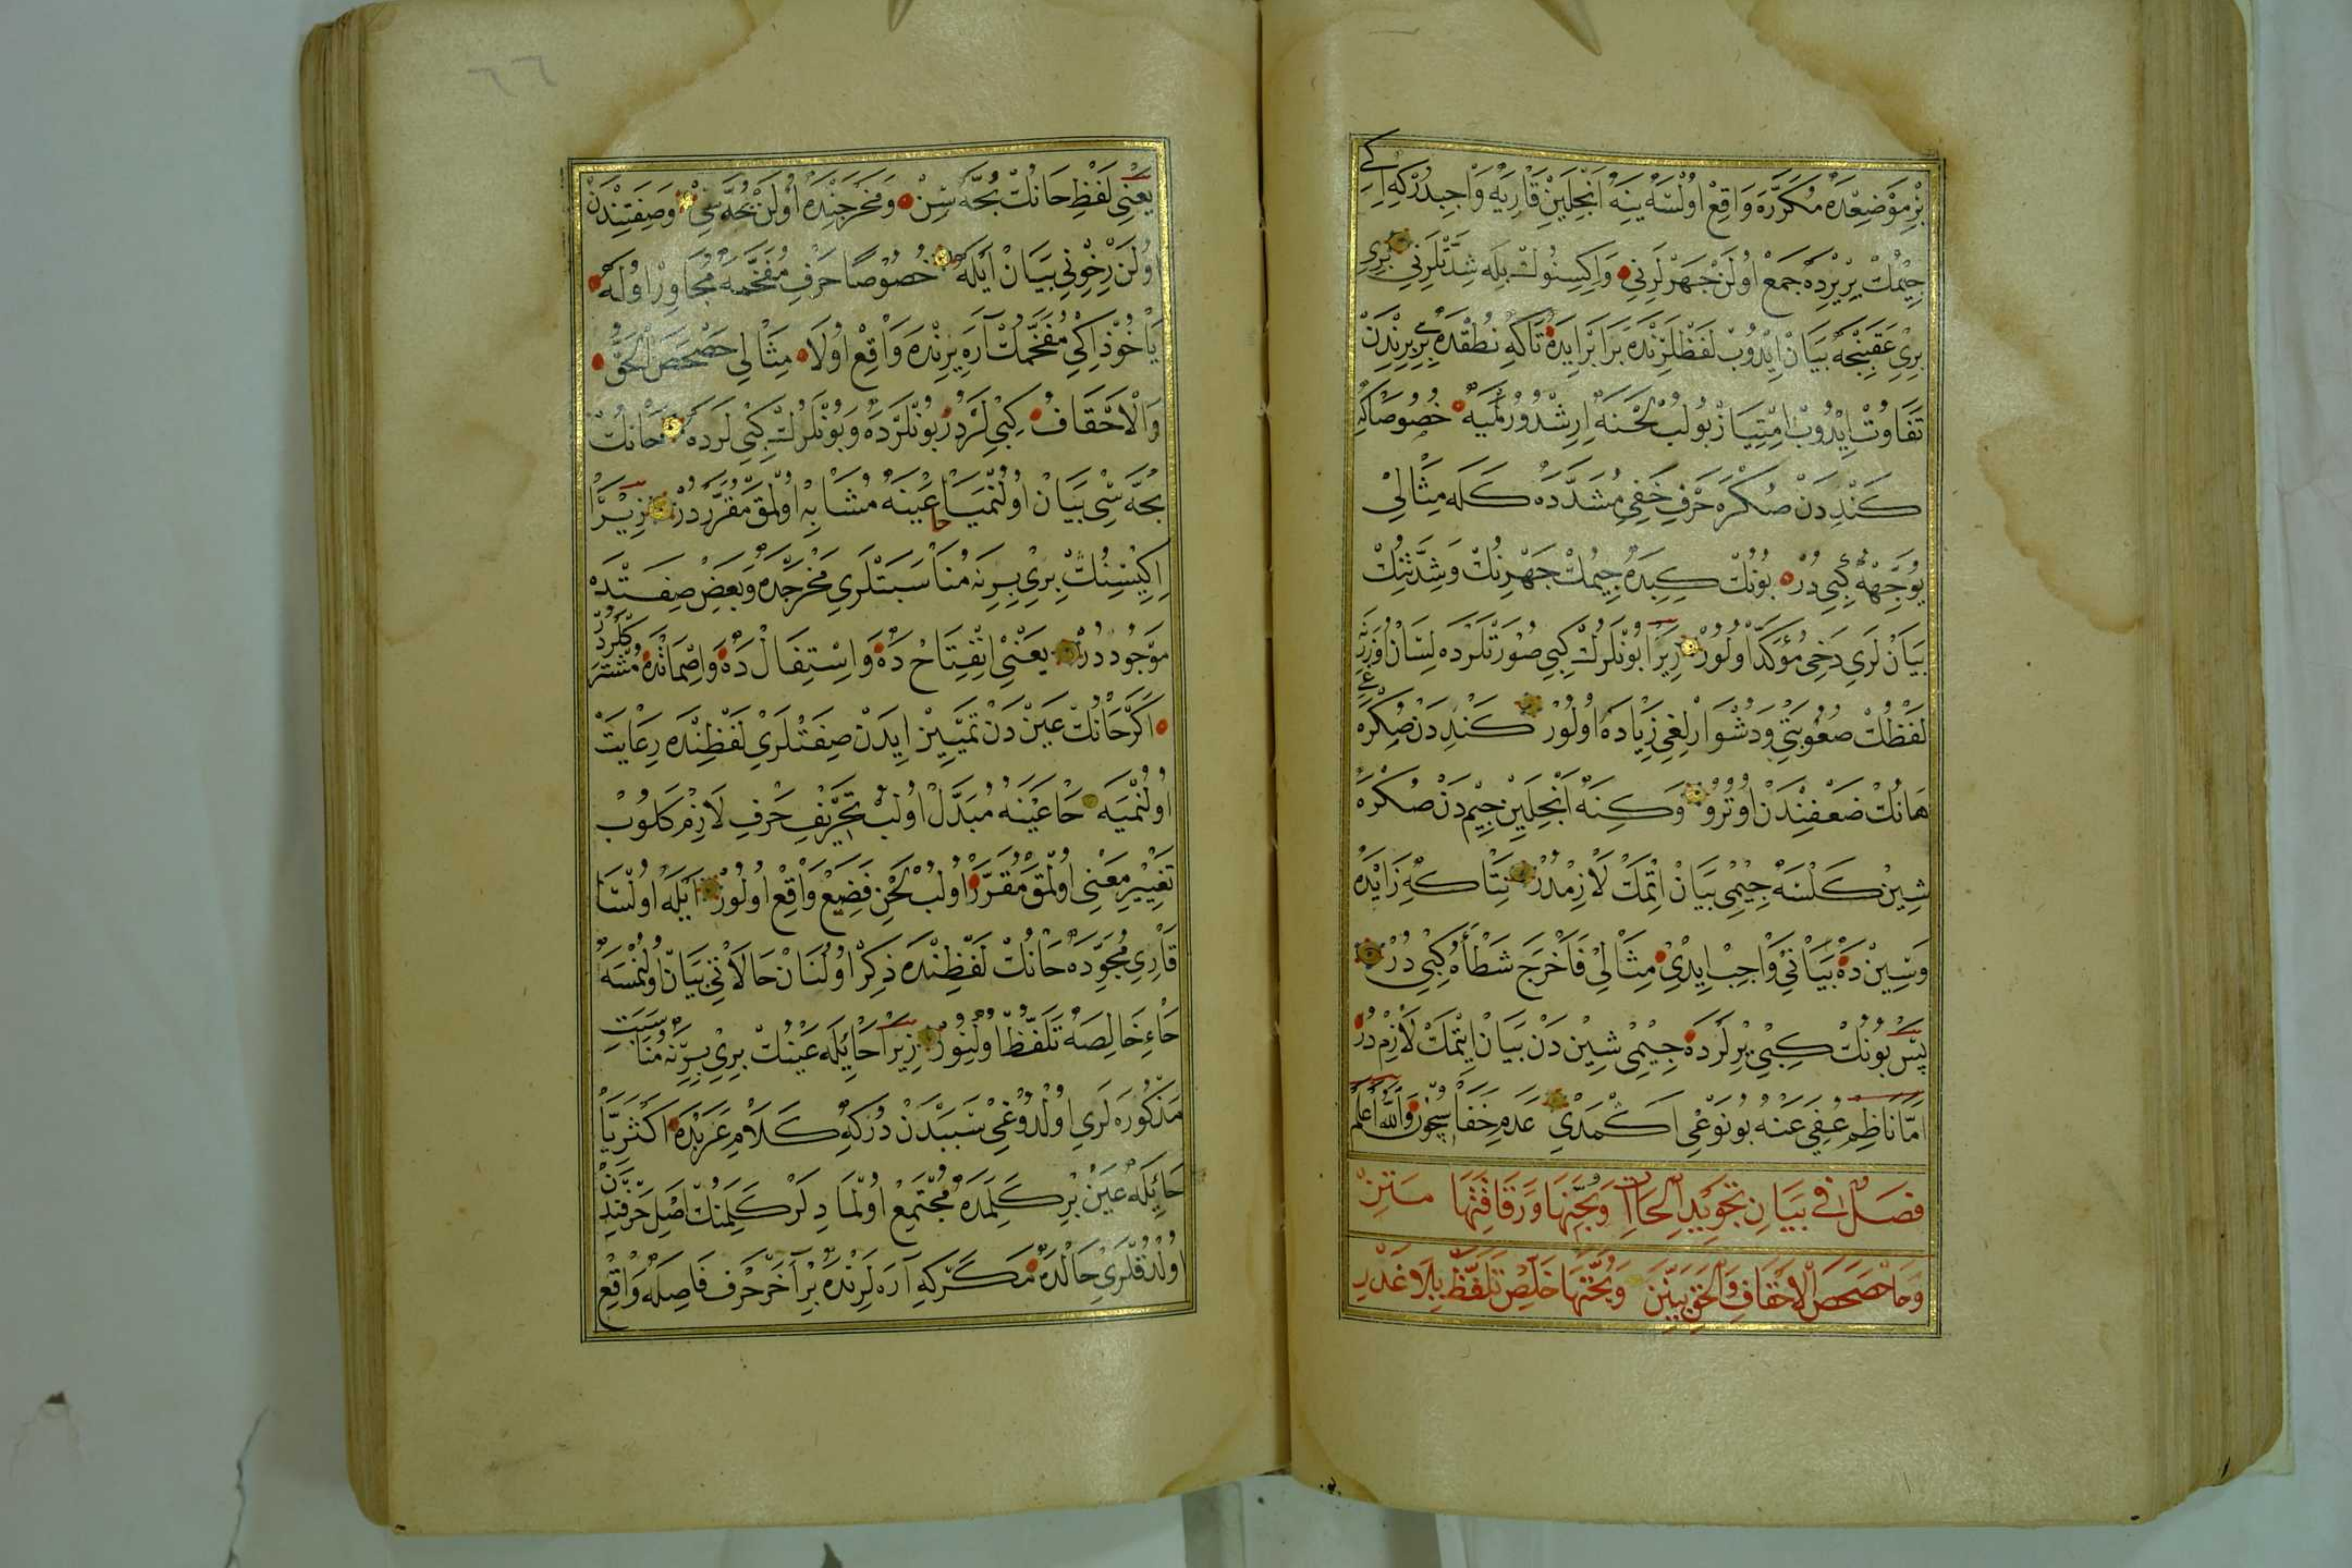 بِرْ مَوْضِعْدَه مُكَرَّرَه وَاقِعْ اُولْسَه يِنَه اَنْجِلَيِنْ قَارِيَه وَاجِبْدُرْكِه اِكِي
جِيمُكْ بِرْ يِرْدَه جَمَعْ اُولَنْ جَهْرلَرِنِي وَاِكِيسِنُوكْ بِلَه شِدَّتْلَرِنِي بِرِي
بِرِي عَقِبِنْجَه بَيَانْ اِيدُوبْ لَفْظْلَرِنْدَه بَرَابَرْ اِيدَه تَاكِه نُطْقْدَه بِرِي بِرِنْدَنْ
تَفَاوُتْ اِيدُوبْ اِمْتِيَازْ بُولُبْ لَحْنَه اِرِشْدُورُلْمَيَه خُصُوصًا كِه
كَنْدِدَنْ صُكْرَه حَرْفِ خَفِي مُشَدَّدَه كَلَه مِثَالِي
يُوَجِّهْهُ كِبِي دُرْ بُونُكْ كِبِيدَه جِيمُكْ جَهْرِنُكْ وَشِدَّتِنُكْ
بَيَانْ لَرِي دَخِي مُؤَكَّدْ اُولُورْ زِيرَا بُونْلَرُكْ كِبِي صُورَتْلَرْدَه لِسَانْ اُوزَرِنَه
لَفْظُكْ صُعُوبَتِي وَدُشْوَارْلِغِي زِيَادَه اُولُورْ كَنْدِدَنْ صُكْرَه غِي
هَانُكْ ضَعْفِنْدَنْ اُوتُرُو وَكِنَه اَنْجِلَيِنْ جِيمْ دَنْ صُكْرَه
شِينْ كَلْسَه جِيمِي بَيَانْ اِتْمَكْ لَازِمْدُرْ نِتَاكِه زَايْدَه
وَسِينْ دَه بَيَانِي وَاجِبْ اِيدِي مِثَالِي فَاَخْرَجَ شَطْأَهُ كِبِي دُرْ
پَسْ بُونُكْ كِبِي يِرْلَرْدَه جِيمِي شِينْ دَنْ بَيَانْ اِتْمَكْ لَازِمْ دُرْ
اَمَّا نَاظِمْ عُفِيَ عَنْهُ بُو نَوْعِي اَكْمَدِي عَدَمِ خَفَاسِيچُونْ وَاللّٰهُ اَعْلَمُ
فَصْلٌ فِي بَيَانِ تَجْوِيدِ الْحَاآتِ وَبُحَّتِهَا وَرَقَاقَتِهَا مَتِنْ
وَحَا حَصْحَصَ الْاَحْقَافِ وَالْحَقِّ بَيِّنَنْ وَبُحَّتَهَا خَلِّصْ تَلَفَّظْ بِلَا غَدْرِ
يَعْنِي لَفْظِ حَانُكْ بُحَّه سِنْ وَمَخْرَجِنْدَه اُولَنْ بُحَّه سِي وَصِفَتِنْدَنْ
اُولَنْ رِخْوِنِي بَيَانْ اَيْلَه خُصُوصًا حَرْفِ مُفَخَّمَه مُجَاوِرْ اُولَه
يَاخُوذْ اِكِي مُفَخَّمُكْ آرَه يِرِنْدَه وَاقِعْ اُولَا مِثَالِي حَصْحَصَ الْحَقُّ
وَالْاَحْقَافُ كِبِي لَرْدُرْ بُونْلَرْدَه وَبُونْلَرُكْ كِبِي لَرْدَه حَانُكْ
بُحَّه سِي بَيَانْ اُولُنْمَيَا عَيْنَه مُشَابِهْ اُولْمَقْ مُقَرَّرْدُرْ زِيرَا
حا
اِكِيسِنُكْ بِرِي بِرِنَه مُنَاسَبَتْلَرِي مَخْرَجْدَه وَبَعْضِ صِفَتْدَه
مَوْجُودْدُرْ يَعْنِي اِنْفِتَاحْ دَه وَاسْتِفَالْ دَه وَاِصْمَاتْدَه مُشْتَرَكْلَرْدُرْ
اَكَرْ حَانُكْ عَيْنْ دَنْ تَمْيِيزْ اِيدَنْ صِفَتْلَرِي لَفْظِنْدَه رِعَايَتْ
اُولُنْمَيَه حَا عَيْنَه مُبَدَّلْ اُولُبْ تَحْرِيفِ حَرْفِ لَازِمْ كَلُوبْ
تَغْيِيرِ مَعْنِي اُولْمَقْ مُقَرَّرْ اُولُبْ لَحْنِ فَضِيعْ وَاقِعْ اُولُورْ اَيْلَه اُولْسَا
قَارِي مُجَوِّدَه حَانُكْ لَفْظِنْدَه ذِكِرْ اُولُنَانْ حَالَاتِي بَيَانْ اُولُنْمَسَه
حَاءِ خَالِصَه تَلَفُّظْ اُولِنُورْ زِيرَا حَائِيلَه عَيْنُكْ بِرِي بِرِنَه مُنَاسَبَتِ
مَذْكُورَه لَرِي اُولْدُوغِي سَبَبْدَنْ دُرْكِه كَلَامِ عَرَبْدَه اَكْثَرِيَّا
حَائِيلَه عَيْنْ بِرْ كَلِمَدَه مُجْتَمِعْ اُولْمَا دِلَرْ كَلِمَنُكْ اَصْلِ حَرْفِنْدَنْ
اُولْدُقْلَرِي حَالْدَه مَكَرْكِه آرَه لَرِنْدَه بِرْ آخَرْ حَرْف فَاصِلَه وَاقِعْ